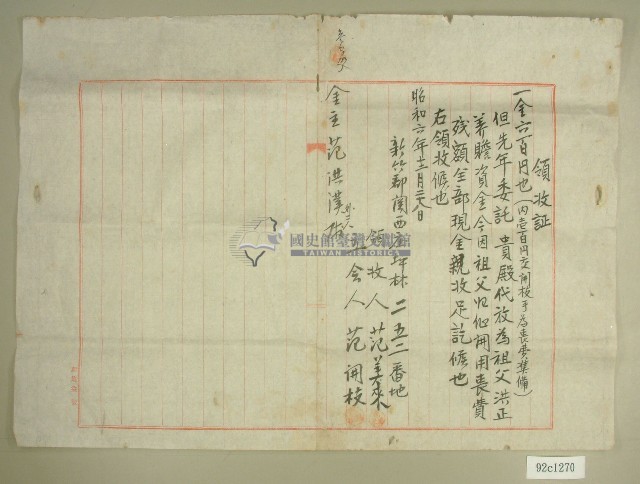 領收証
一金六百円也(內壹百円交開枝手為喪費準備)
但先年委託 貴殿代放為祖父洪正
養贍資金今因祖父昇仙開用喪費
殘額全部現金親收足訖候也
右領收候也
昭和六年十二月二八日
新竹郡關西庄坪林二五二番地
領收人 范美來
立會人 范開枝
金主 范洪漢
國史館臺灣文獻館
TAIWAN HISTORICA
92c1270